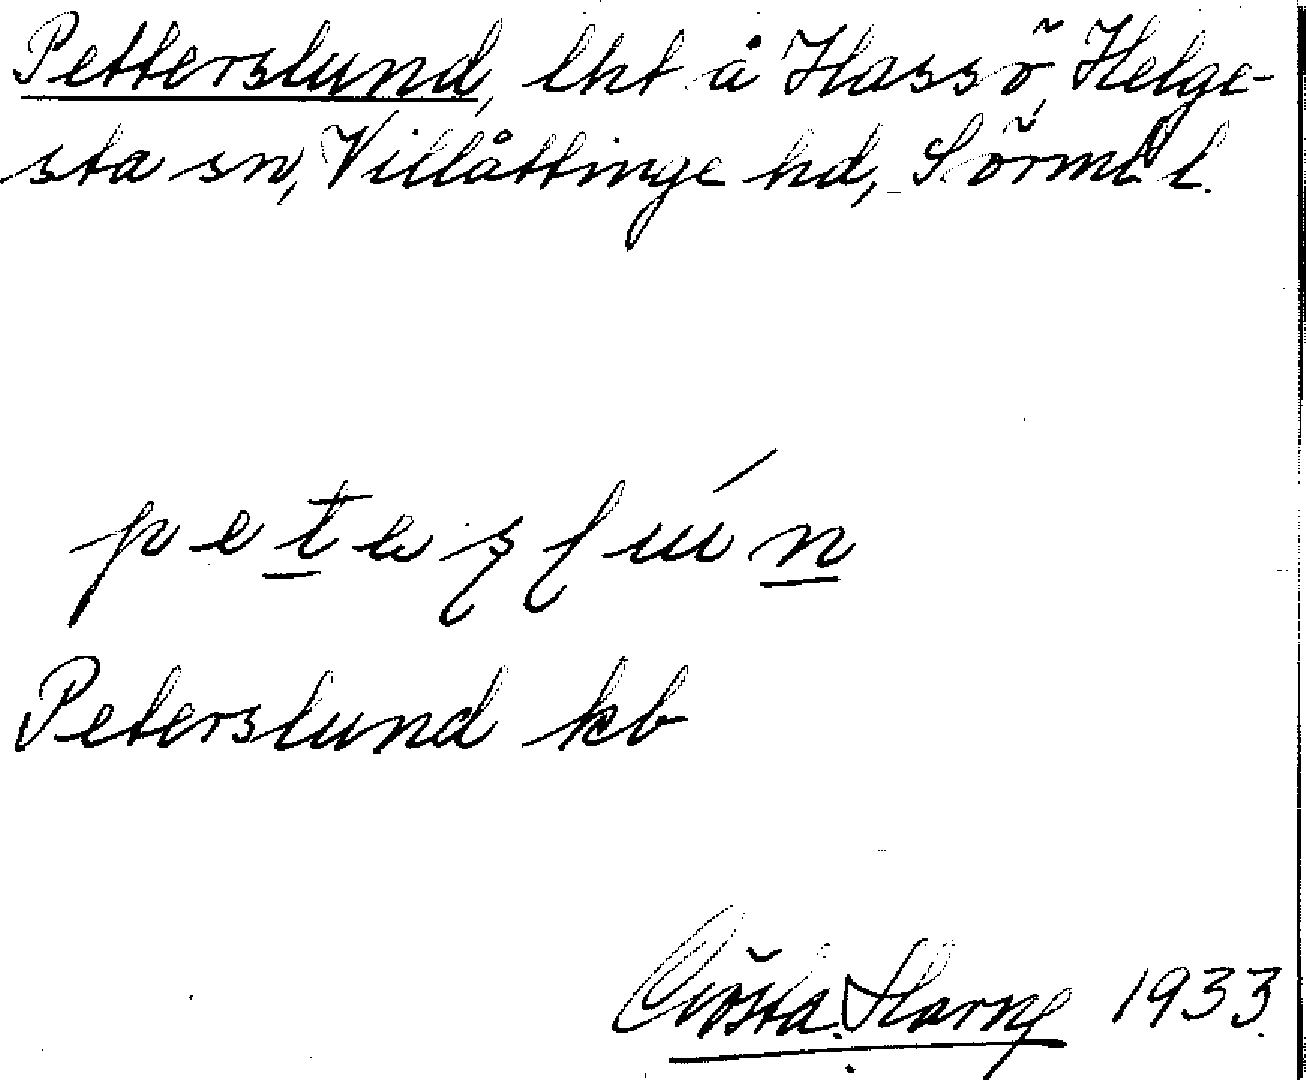 Petterslund, lht å Hassö, Helge-
sta sn, Villåttinge hd, Sörml l.
Peterslund kb
Gösta 1933.